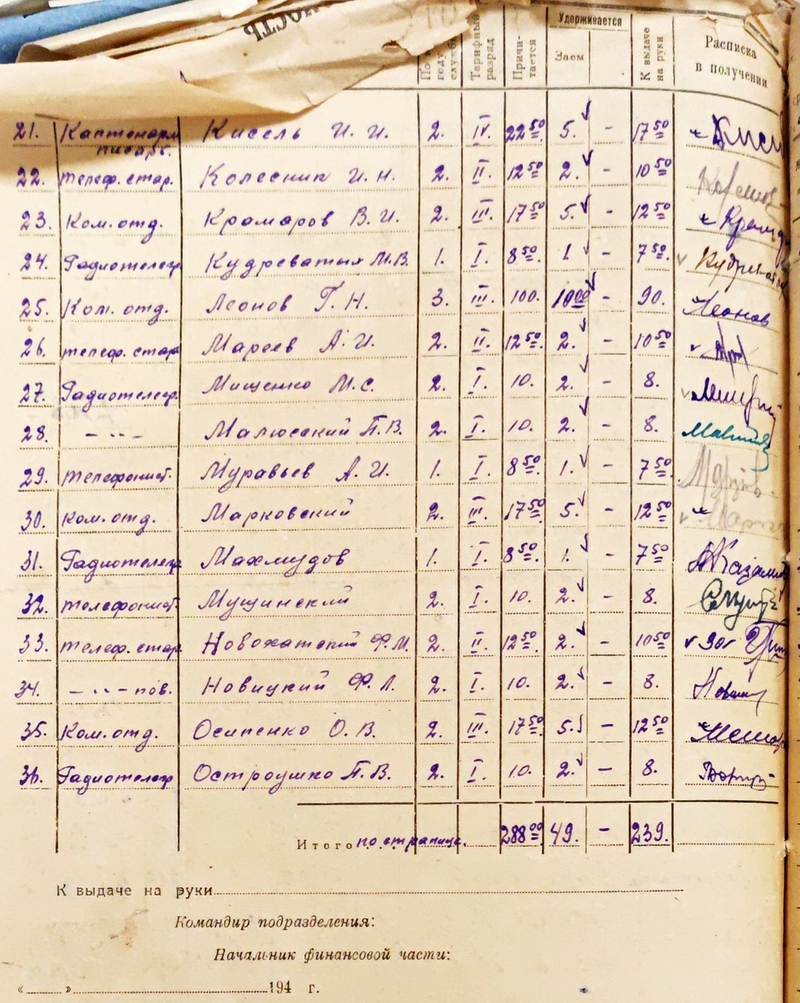 НОСТЬ
По
году
службы
Тарифный
разряд
Причи-
тается
Удерживается
Заем
К выдаче
на руки
Расписка
в получении
21. Каптенарм. писарь. Кисель И. И. 2. IV. 22 50 5. - 17 50
22. телеф. стар. Колесник И. Н. 2. II. 12 50 2. - 10 50
23. Ком. отд. Крамаров В. И. 2. III. 17 50 5. - 12 50
24. Радиотелегр. Кудреватых М. В. 1. I. 8 50 1 - 7 50
25. Ком. отд. Леонов Г. Н. 3. III. 100. 10 00 - 90. Леонов
26. телеф. стар. Мареев А. И. 2. II. 12 50 2. - 10 50
27. Радиотелегр. Мищенко М. С. 2. I. 10. 2. - 8.
28. -"- Малюсский П. В. 2. I. 10. 2. - 8.
29. телефонист. Муравьев А. И. 1. I. 8 50 1. - 7 50
30. Ком. отд. Марковский 2. III. 17 50 5. - 12 50
31. Радиотелегр. Махмудов 1. I. 8 50 1. - 7 50
32. телефонист. Мущинский 2. I. 10. 2. - 8.
33. телеф. стар. Новохатский Ф. М. 2. II. 12 50 2. - 10 50
34. -"- пов. Новицкий Ф. Л. 2. I. 10. 2. - 8.
35. Ком. отд. Осипенко О. В. 2. III. 17 50 5. - 12 50
36. Радиотелегр. Остроушко П. В. 2. I. 10. 2. - 8.
Итого по странице. 288 00 49. - 239.
К выдаче на руки
Командир подразделения:
Начальник финансовой части:
« » 194 г.